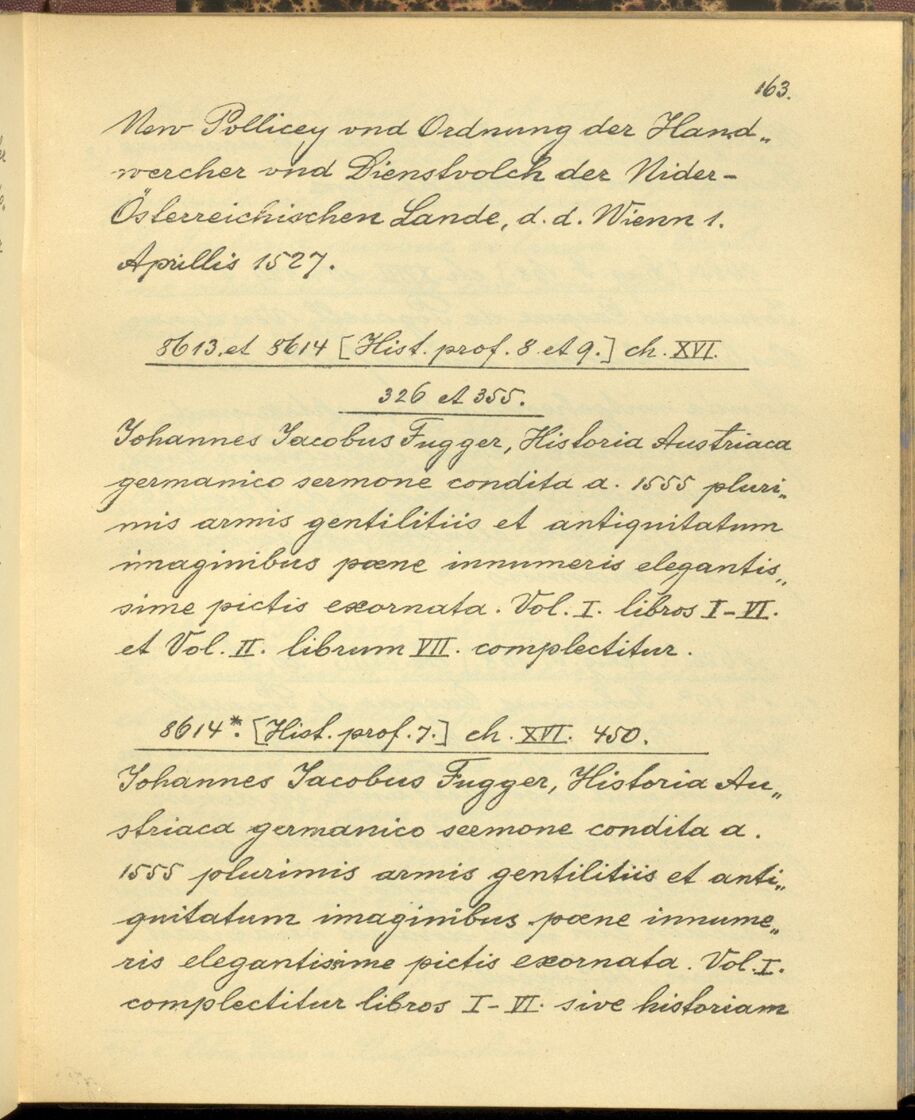 163.
New Pollicey vnd Ordnung der Hand„
wercher vnd Dienstvolch der Nider-
Österreichischen Lande, d. d. Wienn 1.
Aprillis 1527.
8613. et 8614 [Hist. prof. 8 et 9.] ch. XVI.
326 et 355.
Johannes Jacobus Fugger, Historia Austriaca
germanico sermone condita a. 1555 pluri„
mis armis gentilitiis et antiquitatum
imaginibus paene innumeris elegantis„
sime pictis exornata. Vol. I. libros I-VI.
et Vol. II. librum VII. complectitur.
8614*. [Hist. prof. 7.] ch. XVI. 450.
Johannes Jacobus Fugger, Historia Au„
striaca germanico sermone condita a.
1555 plurimis armis gentilitiis et anti„
quitatum imaginibus paene innume„
ris elegantissime pictis exornata. Vol. I.
complectitur libros I-VI. sive historiam